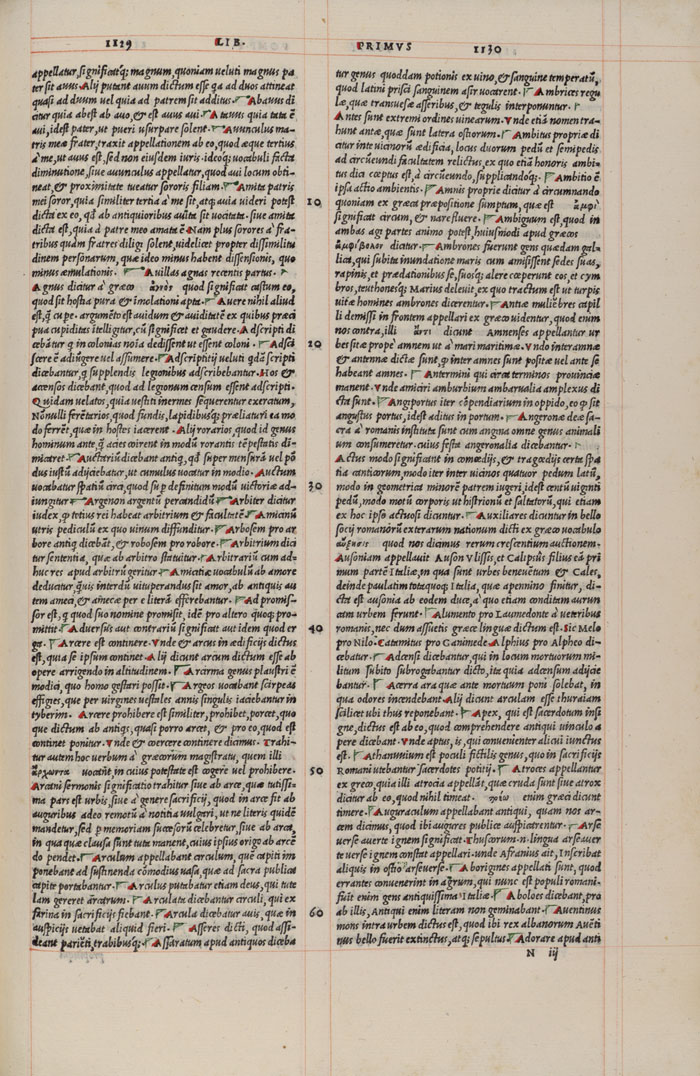 1129 LIB.
appellatur, significatq; magnum, quoniam ueluti magnus pa
ter sit auus. Alij putant auum dictum esse qa ad duos attineat
quasi ad duum uel quia ad patrem sit additus. Abauus di
citur quia abest ab auo, & est auus aui. Atauus quia tata ē
aui, idest pater, ut pueri usurpare solent. Auunculus ma-
tris meæ frater, traxit appellationem ab eo, quod æque tertius
a me, ut auus est, sed non eiusdem iuris. ideoq; uocabuli ficta
diminutione, siue auunculus appellatur, quod aui locum obti-
neat, & proximitate tueatur sororis filiam. Amita patris
mei soror, quia similiter tertia a me sit, atq; auia uideri potest
dicta ex eo, qd ab antiquioribus auita sit uocitata. siue amita
dicta est, quia a patre meo amata ē. Nam plus sorores a fra-
tribus quam fratres diligi solent, uidelicet propter dissimilitu
dinem personarum, quæ ideo minus habent dissensionis, quo
minus æmulationis. Auillas agnas recentis partus.
Agnus dicitur a græco ἁγνός quod significat castum eo,
quod sit hostia pura & imolationi apta. Auere nihil aliud
est, q̄ cupe. argumēto ēst auidum & auiditatē ex quibus præci
pua cupiditas itelligitur, cū significet et gaudere. Adscripti di
cebātur q in colonias noīa dedissent ut essent coloni. Adsci
scere ē adiūgere uel assumere. Adscriptitij ueluti qdā scripti
dicebātur, q supplendis legionibus adscribebantur. Hos &
accensos dicebant, quod ad legionum censum essent adscripti.
Quidam uelatos, quia uestiti inermes sequerentur exercitum,
Nōnulli ferētarios, quod fundis, lapidibusq; præliaturi ea mo
do ferrēt, quæ in hostes iacerent. Alij rorarios, quod id genus
hominum ante q̄ acies coirent in modū rorantis tēpestatis di-
micaret. Auctariū dicebant antiq, qd super mensurā uel pō
dus iustū adijciebatur, ut cumulus uocatur in modio. Auctum
uocabatur spatiū circi, quod sup definitum modū uictoriæ ad-
iungitur. Argenon argentū percandidū. Arbiter dicitur
iudex, q totius rei habeat arbitrium & facultatē. Amicinū
utris pediculū ex quo uinum diffunditur. Arbosem pro ar
bore antiq dicebāt, & robosem pro robore. Arbitrium dici
tur sententia, quæ ab arbitro statuitur. Arbitrariū cum ad-
huc res apud arbitrū geritur. Amicitiæ uocabulū ab amore
deducatur, q̄uis interdū uituperandus sit amor, ab antiquis au
tem ameca, & amecæ per e literā efferebantur. Ad promis-
sor est, q quod suo nomine promisit, idē pro altero quoq; pro-
mittit. Aduersus aut contrariū significat aut idem quod er
go. Arcere est continere. Vnde & arcus in ædificijs dictus
est, quia se ipsum continet. Alij dicunt arcum dictum esse ab
opere arrigendo in altitudinem. Arcirma genus plaustri ē
modici, quo homo gestari possit. Argeos uocabant scirpeas
effigies, quæ per uirgines uestales annis singulis iaciebantur in
tyberim. Arcere prohibere est similiter, prohibet, porcet, quo
que dictum ab antiqs, quasi porro arcet, & pro eo, quod est
continet ponitur. Vnde & coercere continere dicimus. Trahi-
tur autem hoc uerbum a græcorum magistratu, quem illi
ἄρχοντα uocāt, in cuius potestate est cogere uel prohibere.
Arcani sermonis significatio trahitur siue ab arce, quæ tutissi-
ma pars est urbis, siue a genere sacrificij, quod in arce fit ab
auguribus adeo remotū a notitia uulgari, ut ne literis quidē
mandetur, sed p memoriam successorū celebretur, siue ab arca,
in qua quæ clausa sunt tuta manent, cuius ipsius origo ab arcē
do pendet. Arculum appellabant circulum, quē capiti im
ponebant ad sustinenda cōmodius uasa, quæ ad sacra publica
capite portabantur. Arculus putabatur etiam deus, qui tute
lam gereret arcarum. Arculata dicebātur circuli, qui ex
farina in sacrificijs fiebant. Arcula dicebatur auis, quæ in
auspicijs uetabat aliquid fieri. Asseres dicti, quod assi-
deant parieti, trabibusq;. Assaratum apud antiquos diceba
10
20
30
40
50
60
PRIMVS 1130
tur genus quoddam potionis ex uino, & sanguine temperatū,
quod latini prisci sanguinem assir uocarent. Ambrices regu
læ, quæ transuersæ asseribus, & tegulis interponuntur.
Antes sunt extremi ordines uinearum. Vnde etiā nomen tra-
hunt antæ, quæ sunt latera ostiorum. Ambitus propriæ di
citur inter uicinorū ædificia, locus duorum pedū et semipedis
ad circūeundi facultatem relictus, ex quo etiā honoris ambi-
tus dici cœptus est, a circūeundo, supplicandoq;. Ambitio ē
ipsa actio ambientis. Amnis proprie dicitur a circumnando
quoniam ex græca præpositione sumptum, quæ est ἀμφί
significat circum, & nare fluere. Ambiguum est, quod in
ambas agi partes animo potest, huiusmodi apud græcos
ἀμφίβολον dicitur. Ambrones fuerunt gens quædam gal-
lica, qui subita inundatione maris cum amisissent sedes suas,
rapinis, et prædationibus se, suosq; alere cœperunt eos, et cym
bros, teuthonesq; Marius deleuit, ex quo tractum est ut turpis
uitæ homines ambrones dicerentur. Antiæ muliebres capil
li demissi in frontem appellari ex græco uidentur, quod enim
nos contra, illi ἄντι dicunt Amnenses appellantur ur
bes sitæ prope amnem ut a mari maritimæ. Vndo interamnæ
& antemnæ dictæ sunt, q inter amnes sunt positæ uel ante se
habeant amnes. Antermini qui circa terminos prouinciæ
manent. Vnde amiciri amburbium ambarualia amplexus di
cta sunt. Angiportus iter cōpendiarium in oppido, eo q sit
angustus portus, idest aditus in portum. Angeronæ deæ sa-
cra a romanis instituta sunt cum angina omne genus animali
um consumeretur. cuius festa angeronalia dicebantur.
Actus modo significat in comœdijs, & tragœdijs certa spa
tia canticorum, modo iter inter uicinos quatuor pedum latū,
modo in geometrica minorē patrem iugeri, idest centū uiginti
pedū, modo motū corporis ut histrionū et saltatorū, qui etiam
ex hoc ipso actuosi dicuntur. Auxiliares dicuntur in bello
socij romanorū exterarum nationum dicti ex græco uocabulo
αὔξησις quod nos dicimus rerum crescentium auctionem.
Ausoniam appellauit Auson Vlissis, et Calipsūs filius eā pri
mum partē Italiæ, in qua sunt urbes beneuētum & Cales,
deinde paulatim totaquoq; Italia, quæ apennino finitur, di-
cta est ausonia ab eodem duce, a quo etiam conditem aurun
cam urbem ferunt. Alumento pro Laumedonte a ueteribus
romanis, nec dum assuetis græcæ linguæ dictum est. Sic Melo
pro Nilo. Catamitus pro Ganimede. Alphius pro Alpheo di-
cebatur. Adcensi dicebantur, qui in locum mortuorum mi-
litum subito subrogabantur dicto, ita quia adcensum adijcie
bantur. Acerra ara quæ ante mortuum poni solebat, in
qua odores incendebant. Alij dicunt arculam esse thurariam
scilicet ubi thus reponebant. Apex, qui est sacerdotum insi
gne, dictus est ab eo, quod comprehendere antiqui uinculo a
pere dicebant. Vnde aptus, is, qui conuenienter alicui iunctus
est. Athannuium est poculi fictilis genus, quo in sacrificijs
Romani utebantur sacerdotes potitij. Atroces appellantur
ex græco, quia illi atrocia appellāt, quæ cruda sunt siue atrox
dicitur ab eo, quod nihil timeat. enim græci dicunt
timere. Auguraculum appellabant antiqui, quam nos ar-
cem dicimus, quod ibi augures publice auspicarentur. Arse
uerse auerte ignem significat. Thuscorum. n. lingua arse auer
te uerse ignem constat appellari. unde Afranius ait, Inscribat
aliquis in ostio arseuerse. Aborigines appellati sunt, quod
errantes conuenerint in agrum, qui nunc est populi romani.
fuit enim gens antiquissima Italiæ. Aboloes dicebant, pro
ab illis, Antiqui enim literam non geminabant. Auentinus
mons intra urbem dictus est, quod ibi rex albanorum Auēti
nus bello fuerit extinctus, atq; sepultus. Adorare apud anti
N iij